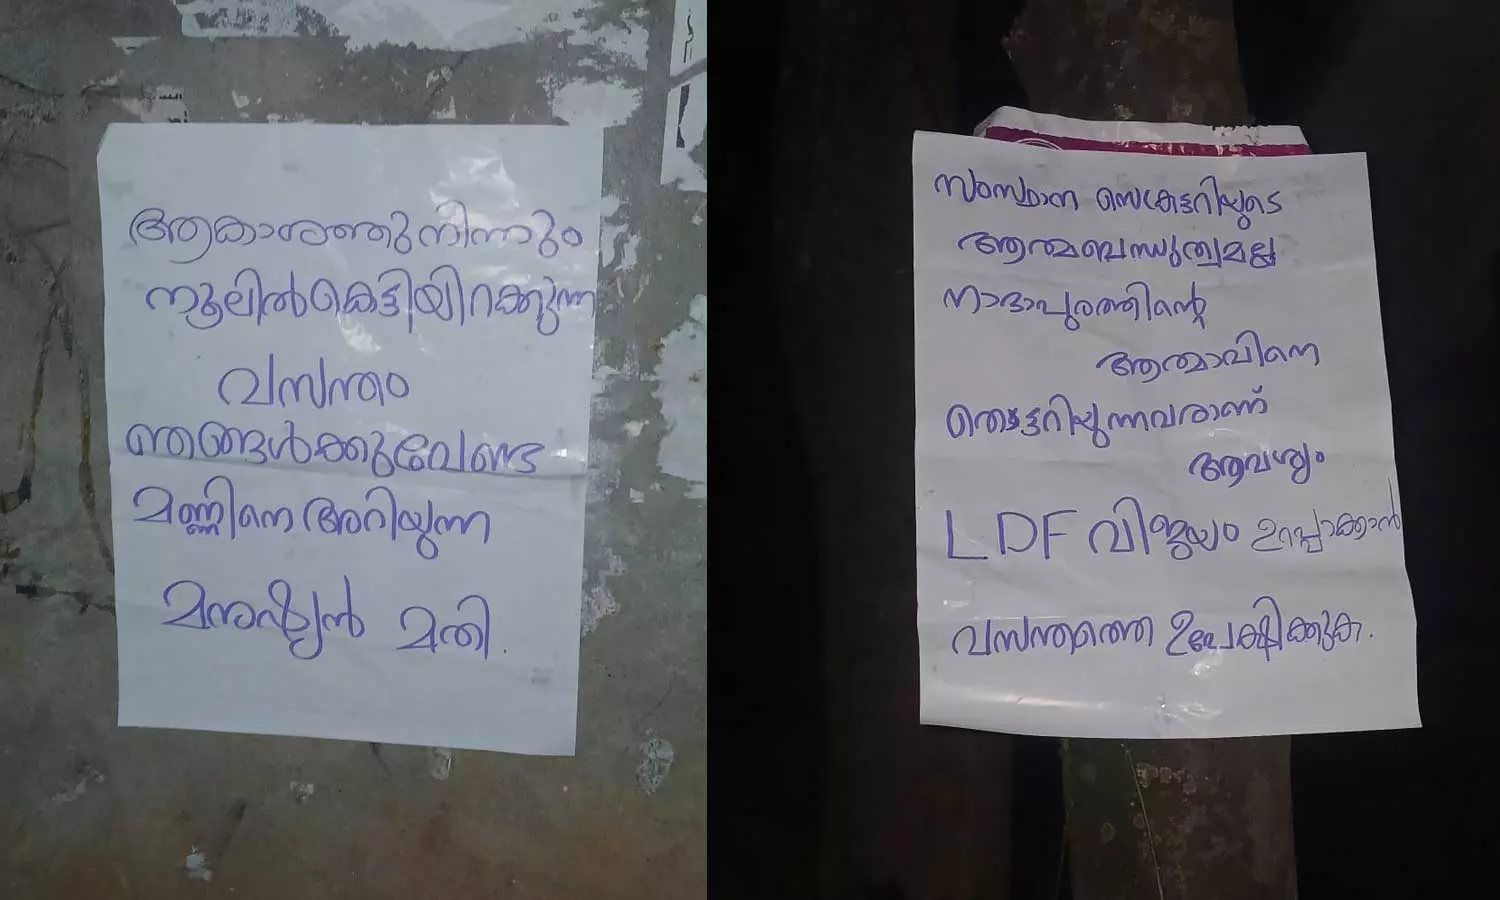 ആകാശത്തുനിന്നും
നൂലിൽകെട്ടിയിറക്കുന്ന
വസന്തം
ഞങ്ങൾക്കുവേണ്ട
മണ്ണിനെ അറിയുന്ന
മനുഷ്യൻ മതി.
സംസ്ഥാന സെക്രട്ടറിയുടെ
ആത്മബന്ധുത്വമല്ല
നാദാപുരത്തിന്റെ
ആത്മാവിനെ
തൊട്ടറിയുന്നവരാണ്
ആവശ്യം
LDF വിജയം ഉറപ്പാക്കാൻ
വസന്തത്തെ ഉപേക്ഷിക്കുക.